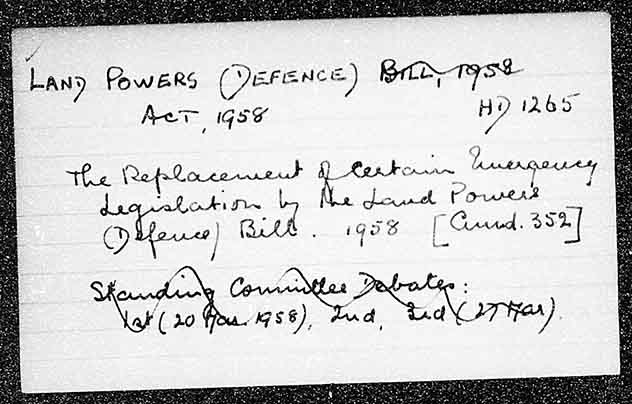 LAND POWERS (DEFENCE) BILL, 1958
ACT, 1958 HD 1265
The Replacement of Certain Emergency
Legislation by the Land Powers
(Defence) Bill. 1958 [Cmnd. 352]
Standing Committee Debates:
1st (20 Mar. 1958), 2nd, 3rd (27 Mar).